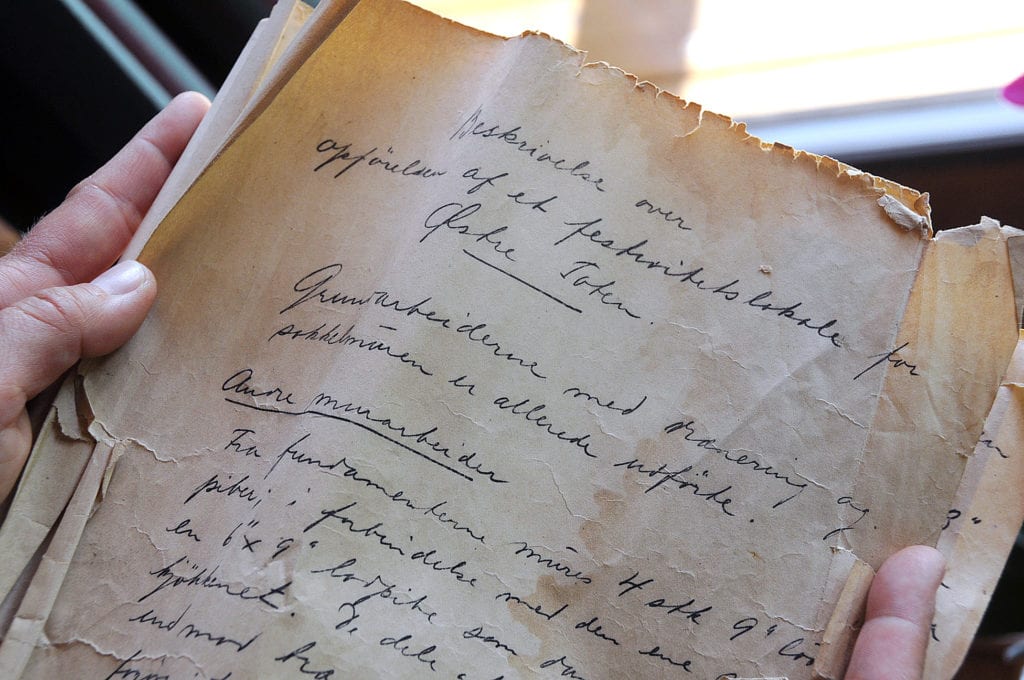 Beskrivelse over
opförelsen af et festivitetslokale for
Østre Toten.
Grunarbeiderne med dranering og
sokkelmuren er allerede utförte.
Andre murarbeider
Fra fundamenterne mures 4 stk 9"
piber, i forbindelse med den ene
en 6" x 9" som
kjökkenet. De dele
ind mod fra
3"